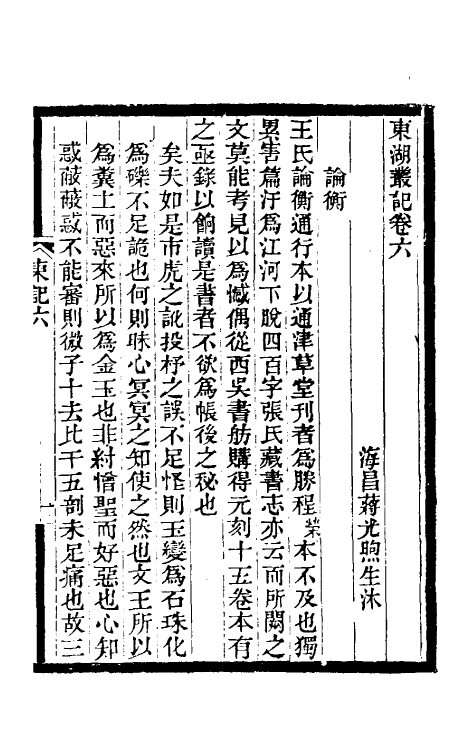 東湖叢記卷六
海昌蔣光煦生沐
論衡
王氏論衡通行本以通津草堂刊者爲勝程榮本不及也獨
累害篇汙爲江河下脫四百字張氏藏書志亦云而所闕之
文莫能考見以爲憾偶從西吳書舫購得元刻十五卷本有
之亟錄以餉讀是書者不欲爲帳後之秘也
矣夫如是市虎之訛投杼之誤不足怪則玉變爲石珠化
爲礫不足詭也何則昧心冥冥之知使之然也文王所以
爲糞土而惡來所以爲金玉也非紂憎聖而好惡也心知
惑蔽蔽惑不能審則微子十去比干五剖未足痛也故三
東記六
一